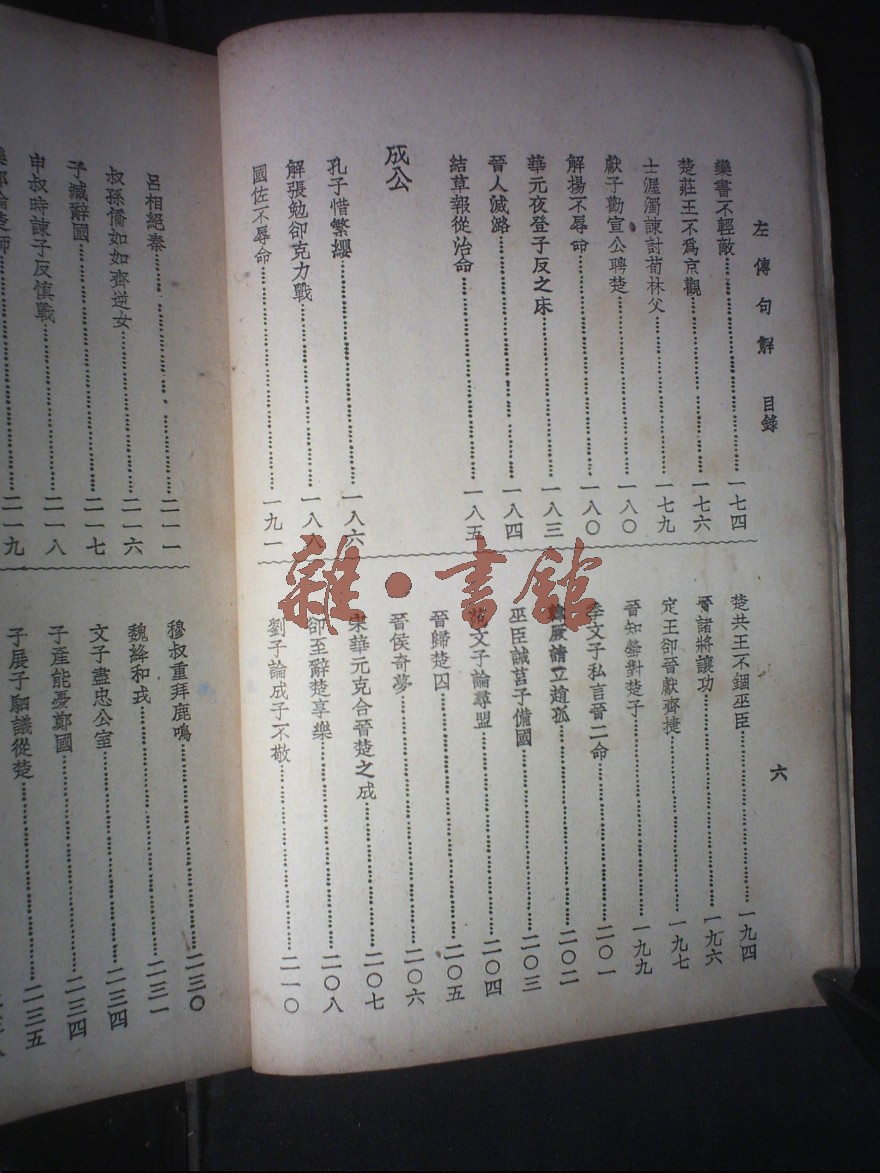 左傳句解 目錄
六
欒書不輕敵……一七四
楚莊王不爲京觀……一七六
士渥濁諫討荀林父……一七九
獻子勸宣公聘楚……一八〇
解揚不辱命……一八〇
華元夜登子反之床……一八三
晉人滅潞……一八四
結草報從治命……一八五
成公
孔子惜繁纓……一八六
解張勉卻克力戰……一八八
國佐不辱命……一九一
楚共王不錮巫臣……一九四
晉諸將讓功……一九六
定王卻晉獻齊捷……一九七
晉知罃對楚子……一九九
季文子私言晉二命……二〇一
韓厥請立趙孤……二〇二
巫臣誠莒子備國……二〇三
范文子論尋盟……二〇四
晉歸楚囚……二〇五
晉侯奇夢……二〇六
宋華元克合晉楚之成……二〇七
卻至辭楚享樂……二〇八
劉子論成子不敬……二一〇
呂相絕秦……二一一
叔孫僑如如齊逆女……二一六
子臧辭國……二一七
申叔時諫子反慎戰……二一八
二一九
穆叔重拜鹿鳴……二三〇
魏絳和戎……二三一
文子盡忠公室……二三四
子產能憂鄭國……二三四
子展子駟議從楚……二三五
雜·書館